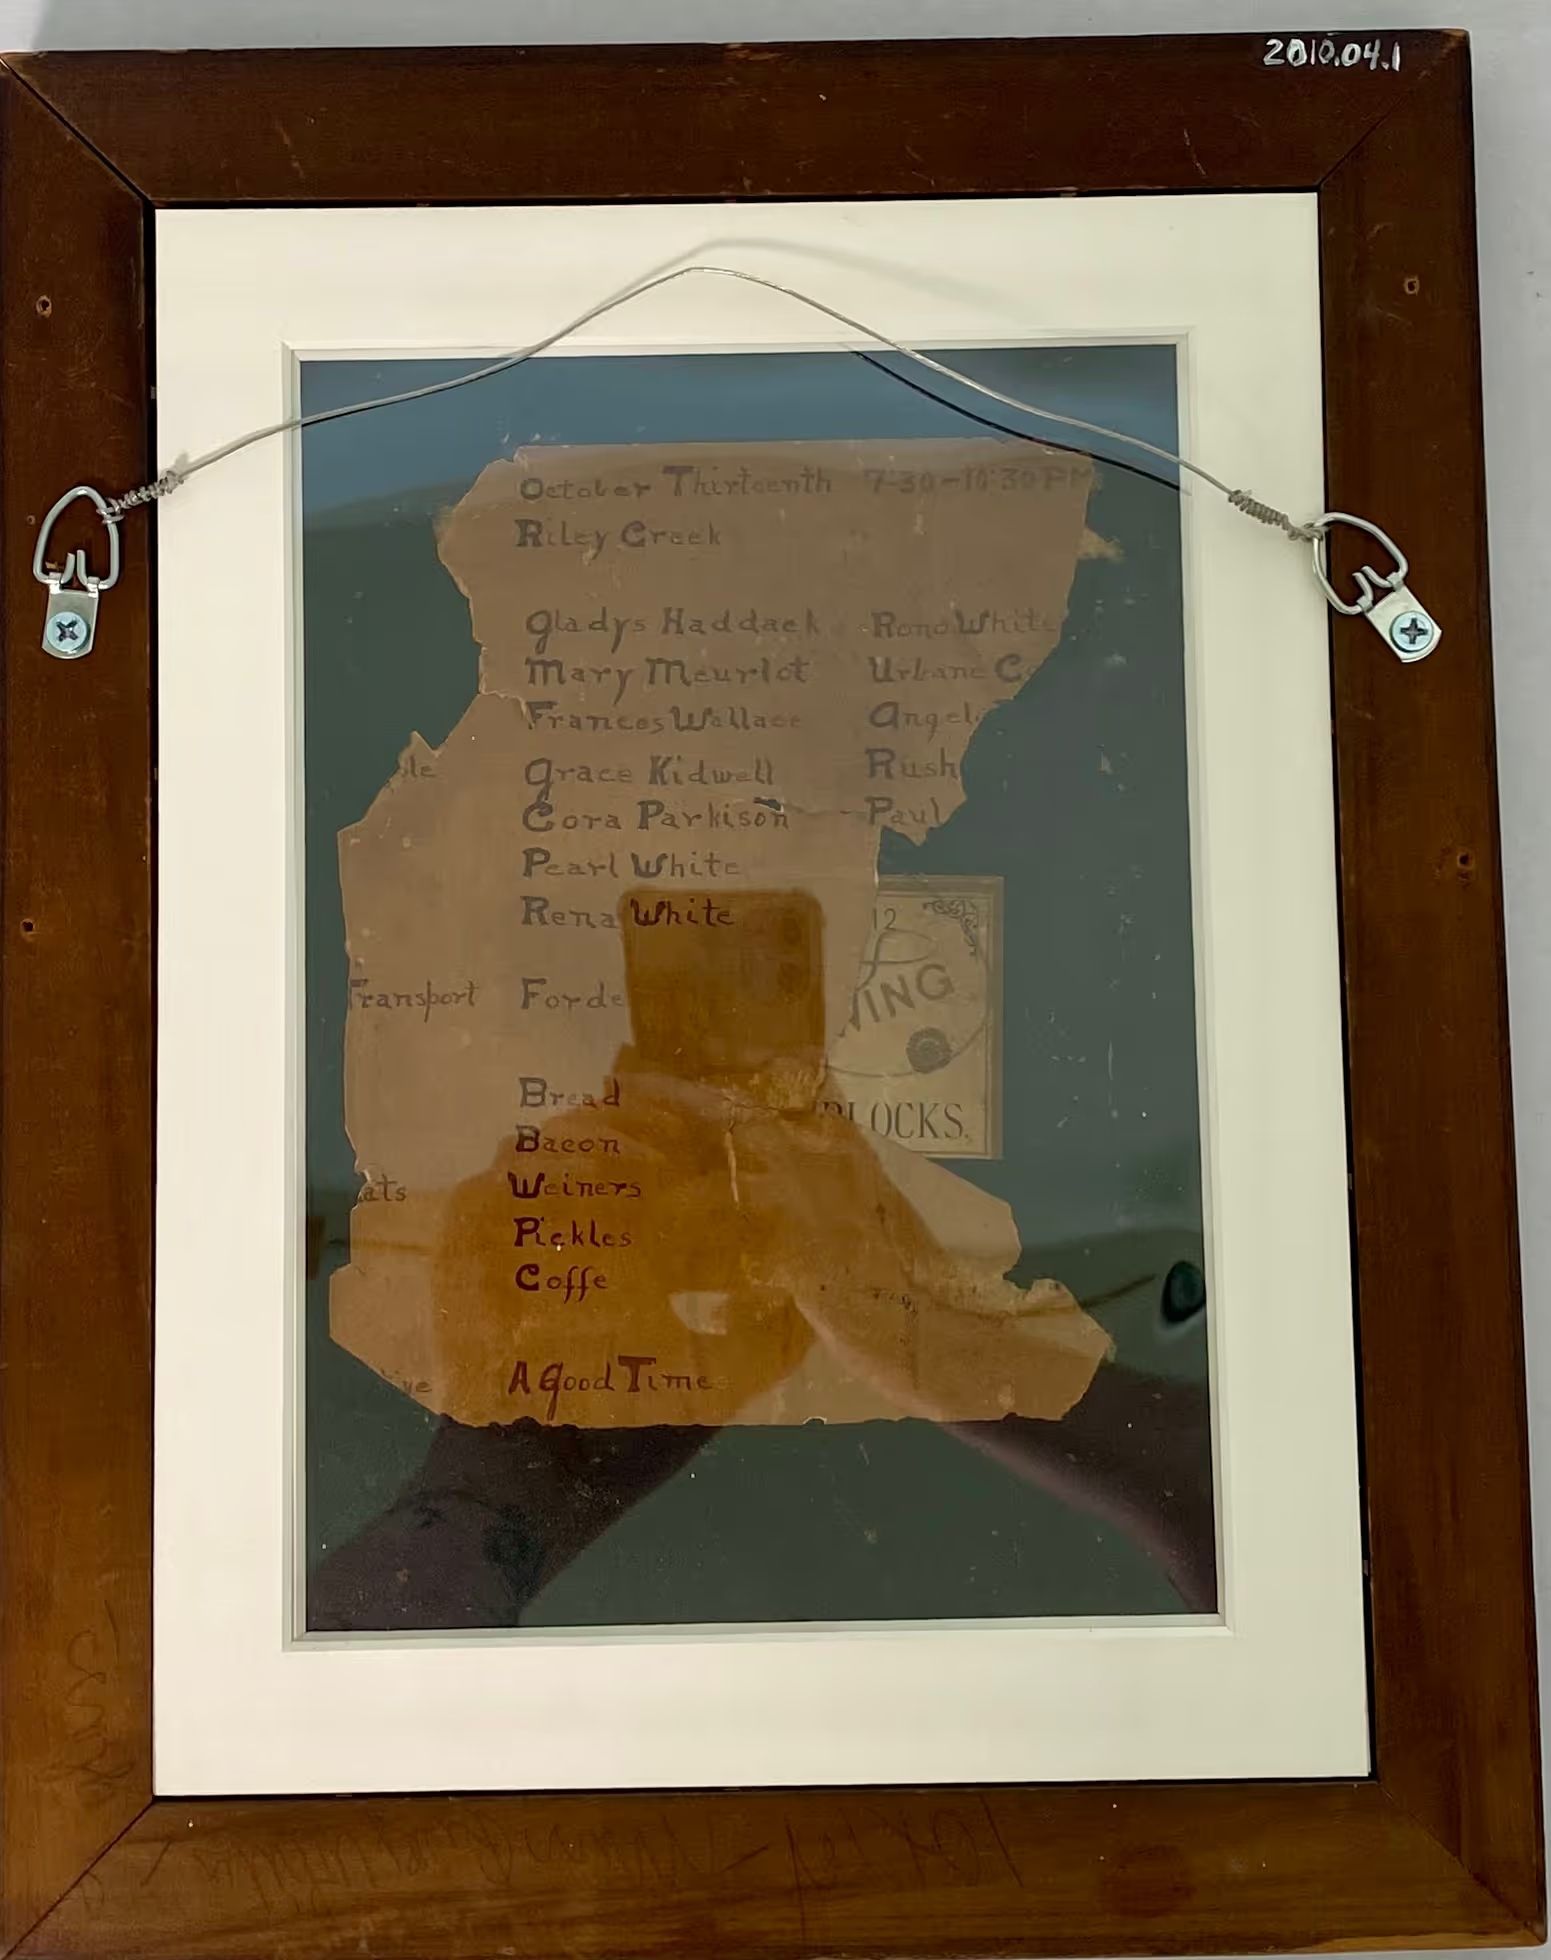 2010.04.1
October Thirteenth 7-30-10-30 PM
Riley Creek
Gladys Haddack Rono White
Mary Meurlot Urbane C
Frances Wallace Angel
ple Grace Kidwell Rush
Cora Parkison Paul
Pearl White
Rena White
12
Transport Forde
NING
Bread
BLOCKS.
Bacon
ats Weiners
Pickles
Coffe
ive A Good Time